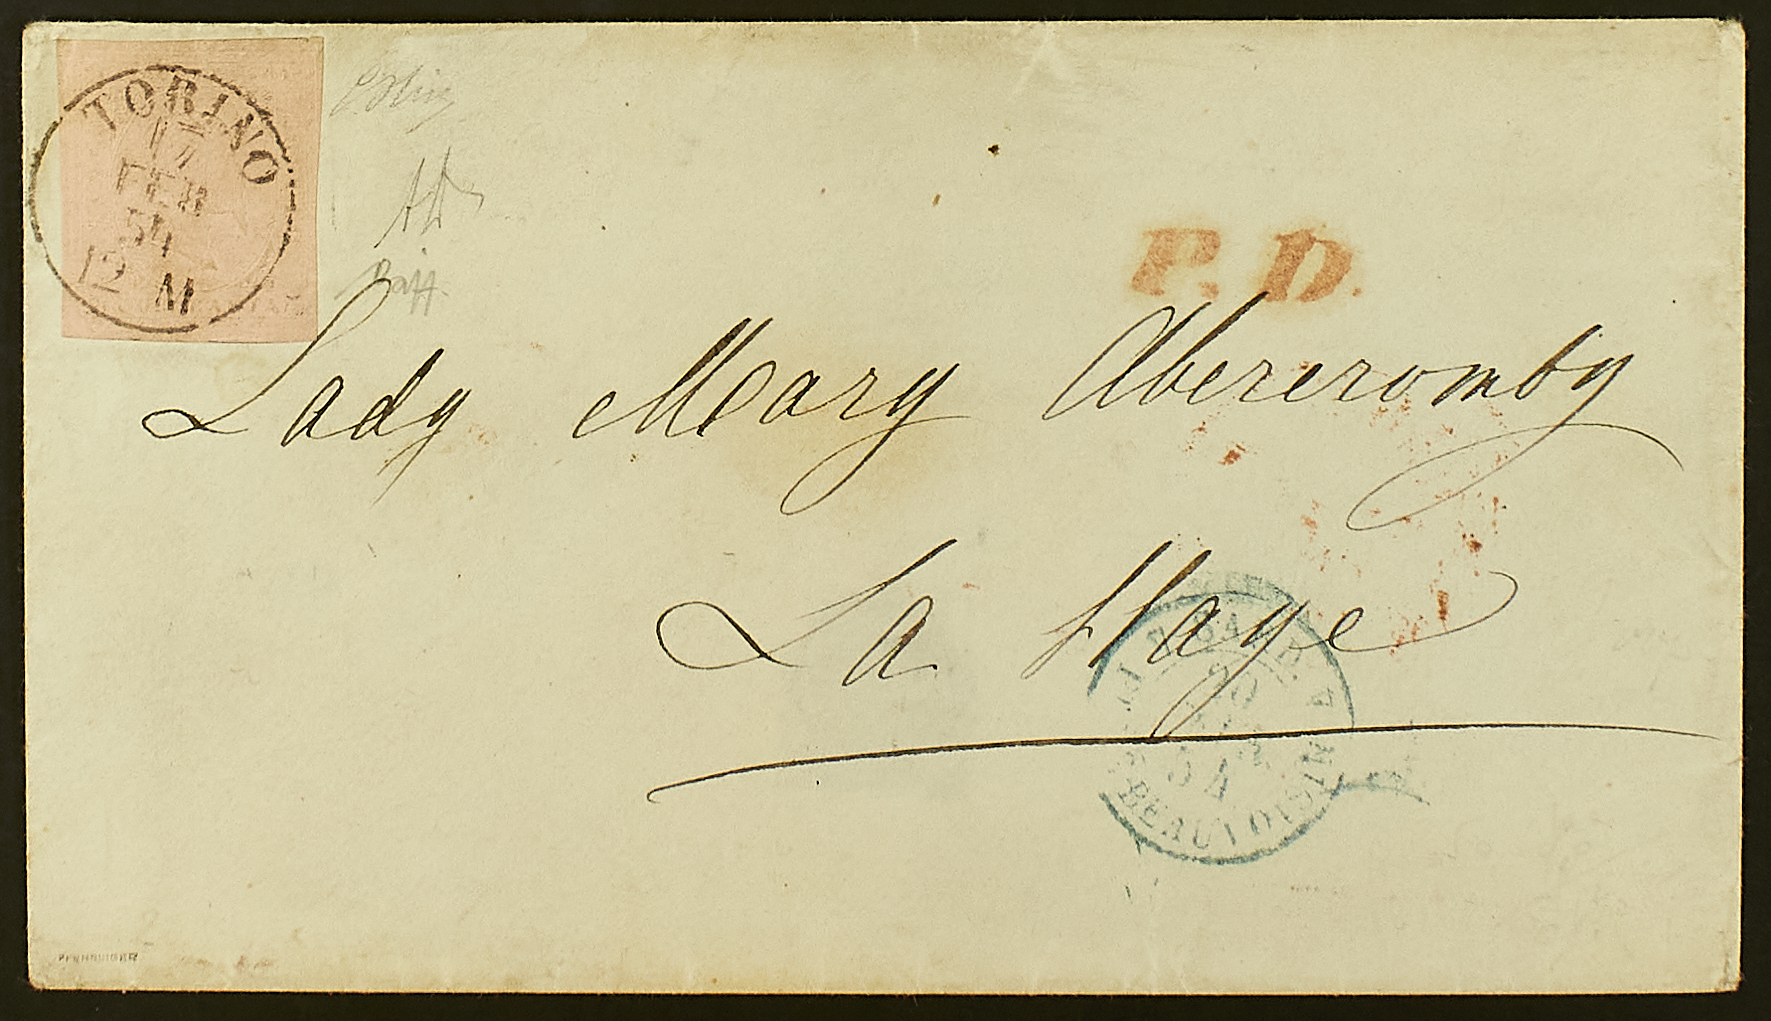 TORINO
17
FEB
54
12 M
P.D.
Lady Mary Abercromby
La Haye
20